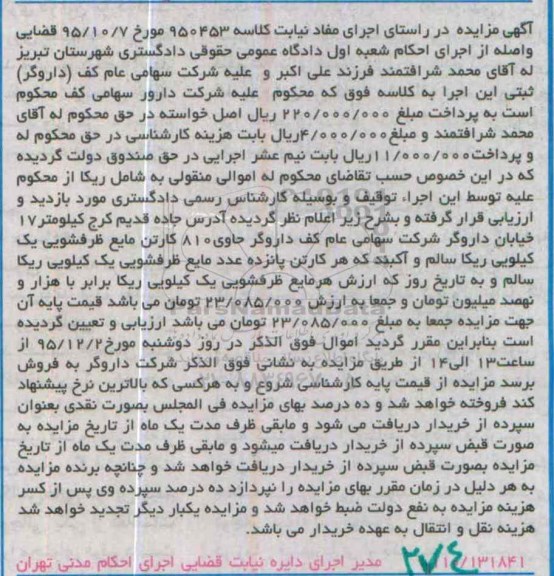 آگهی مزایده در راستای اجرای مفاد نیابت کلاسه ۹۵۰۴۵۳ مورخ ۹۵/۱۰/۷ قضایی
واصله از اجرای احکام شعبه اول دادگاه عمومی حقوقی دادگستری شهرستان تبریز
له آقای محمد شرافتمند فرزند علی اکبر و علیه شرکت سهامی عام کف (داروگر)
ثبتی این اجرا به کلاسه فوق که محکوم علیه شرکت دارور سهامی کف محکوم
است به پرداخت مبلغ ۲۲۰/۰۰۰/۰۰۰ ریال اصل خواسته در حق محکوم له آقای
محمد شرافتمند و مبلغ۴/۰۰۰/۰۰۰ریال بابت هزینه کارشناسی در حق محکوم له
و پرداخت۱۱/۰۰۰/۰۰۰ریال بابت نیم عشر اجرایی در حق صندوق دولت گردیده
که در این خصوص حسب تقاضای محکوم له اموالی منقولی به شامل ریکا از محکوم
علیه توسط این اجراء توقیف و بوسیله کارشناس رسمی دادگستری مورد بازدید و
ارزیابی قرار گرفته و بشرح زیر اعلام نظر گردیده آدرس جاده قدیم کرج کیلومتر۱۷
خیابان داروگر شرکت سهامی عام کف داروگر حاوی۸۱۰ کارتن مایع ظرفشویی یک
کیلویی ریکا سالم و آکبند که هر کارتن پانزده عدد مایع ظرفشویی یک کیلویی ریکا
سالم و به تاریخ روز که ارزش هرمایع ظرفشویی یک کیلویی ریکا برابر با هزار و
نهصد میلیون تومان و جمعا به ارزش ۲۳/۰۸۵/۰۰۰ تومان می باشد قیمت پایه آن
جهت مزایده جمعا به مبلغ ۲۳/۰۸۵/۰۰۰ تومان می باشد ارزیابی و تعیین گردیده
است بنابراین مقرر گردید اموال فوق الذکر در روز دوشنبه مورخ۹۵/۱۲/۲ از
ساعت۱۳ الی۱۴ از طریق مزایده به نشانی فوق الذکر شرکت داروگر به فروش
برسد مزایده از قیمت پایه کارشناسی شروع و به هرکسی که بالاترین نرخ پیشنهاد
کند فروخته خواهد شد و ده درصد بهای مزایده فی المجلس بصورت نقدی بعنوان
سپرده از خریدار دریافت می شود و مابقی ظرف مدت یک ماه از تاریخ مزایده به
صورت قبض سپرده از خریدار دریافت میشود و مابقی ظرف مدت یک ماه از تاریخ
مزایده بصورت قبض سپرده از خریدار دریافت خواهد شد و چنانچه برنده مزایده
به هر دلیل در زمان مقرر بهای مزایده را نپردازد ده درصد سپرده وی پس از کسر
هزینه مزایده به نفع دولت ضبط خواهد شد و مزایده یکبار دیگر تجدید خواهد شد
هزینه نقل و انتقال به عهده خریدار می باشد.
۱۱۰/۱۳۱۸۴۱ ۲۷٤ مدیر اجرای دایره نیابت قضایی اجرای احکام مدنی تهران